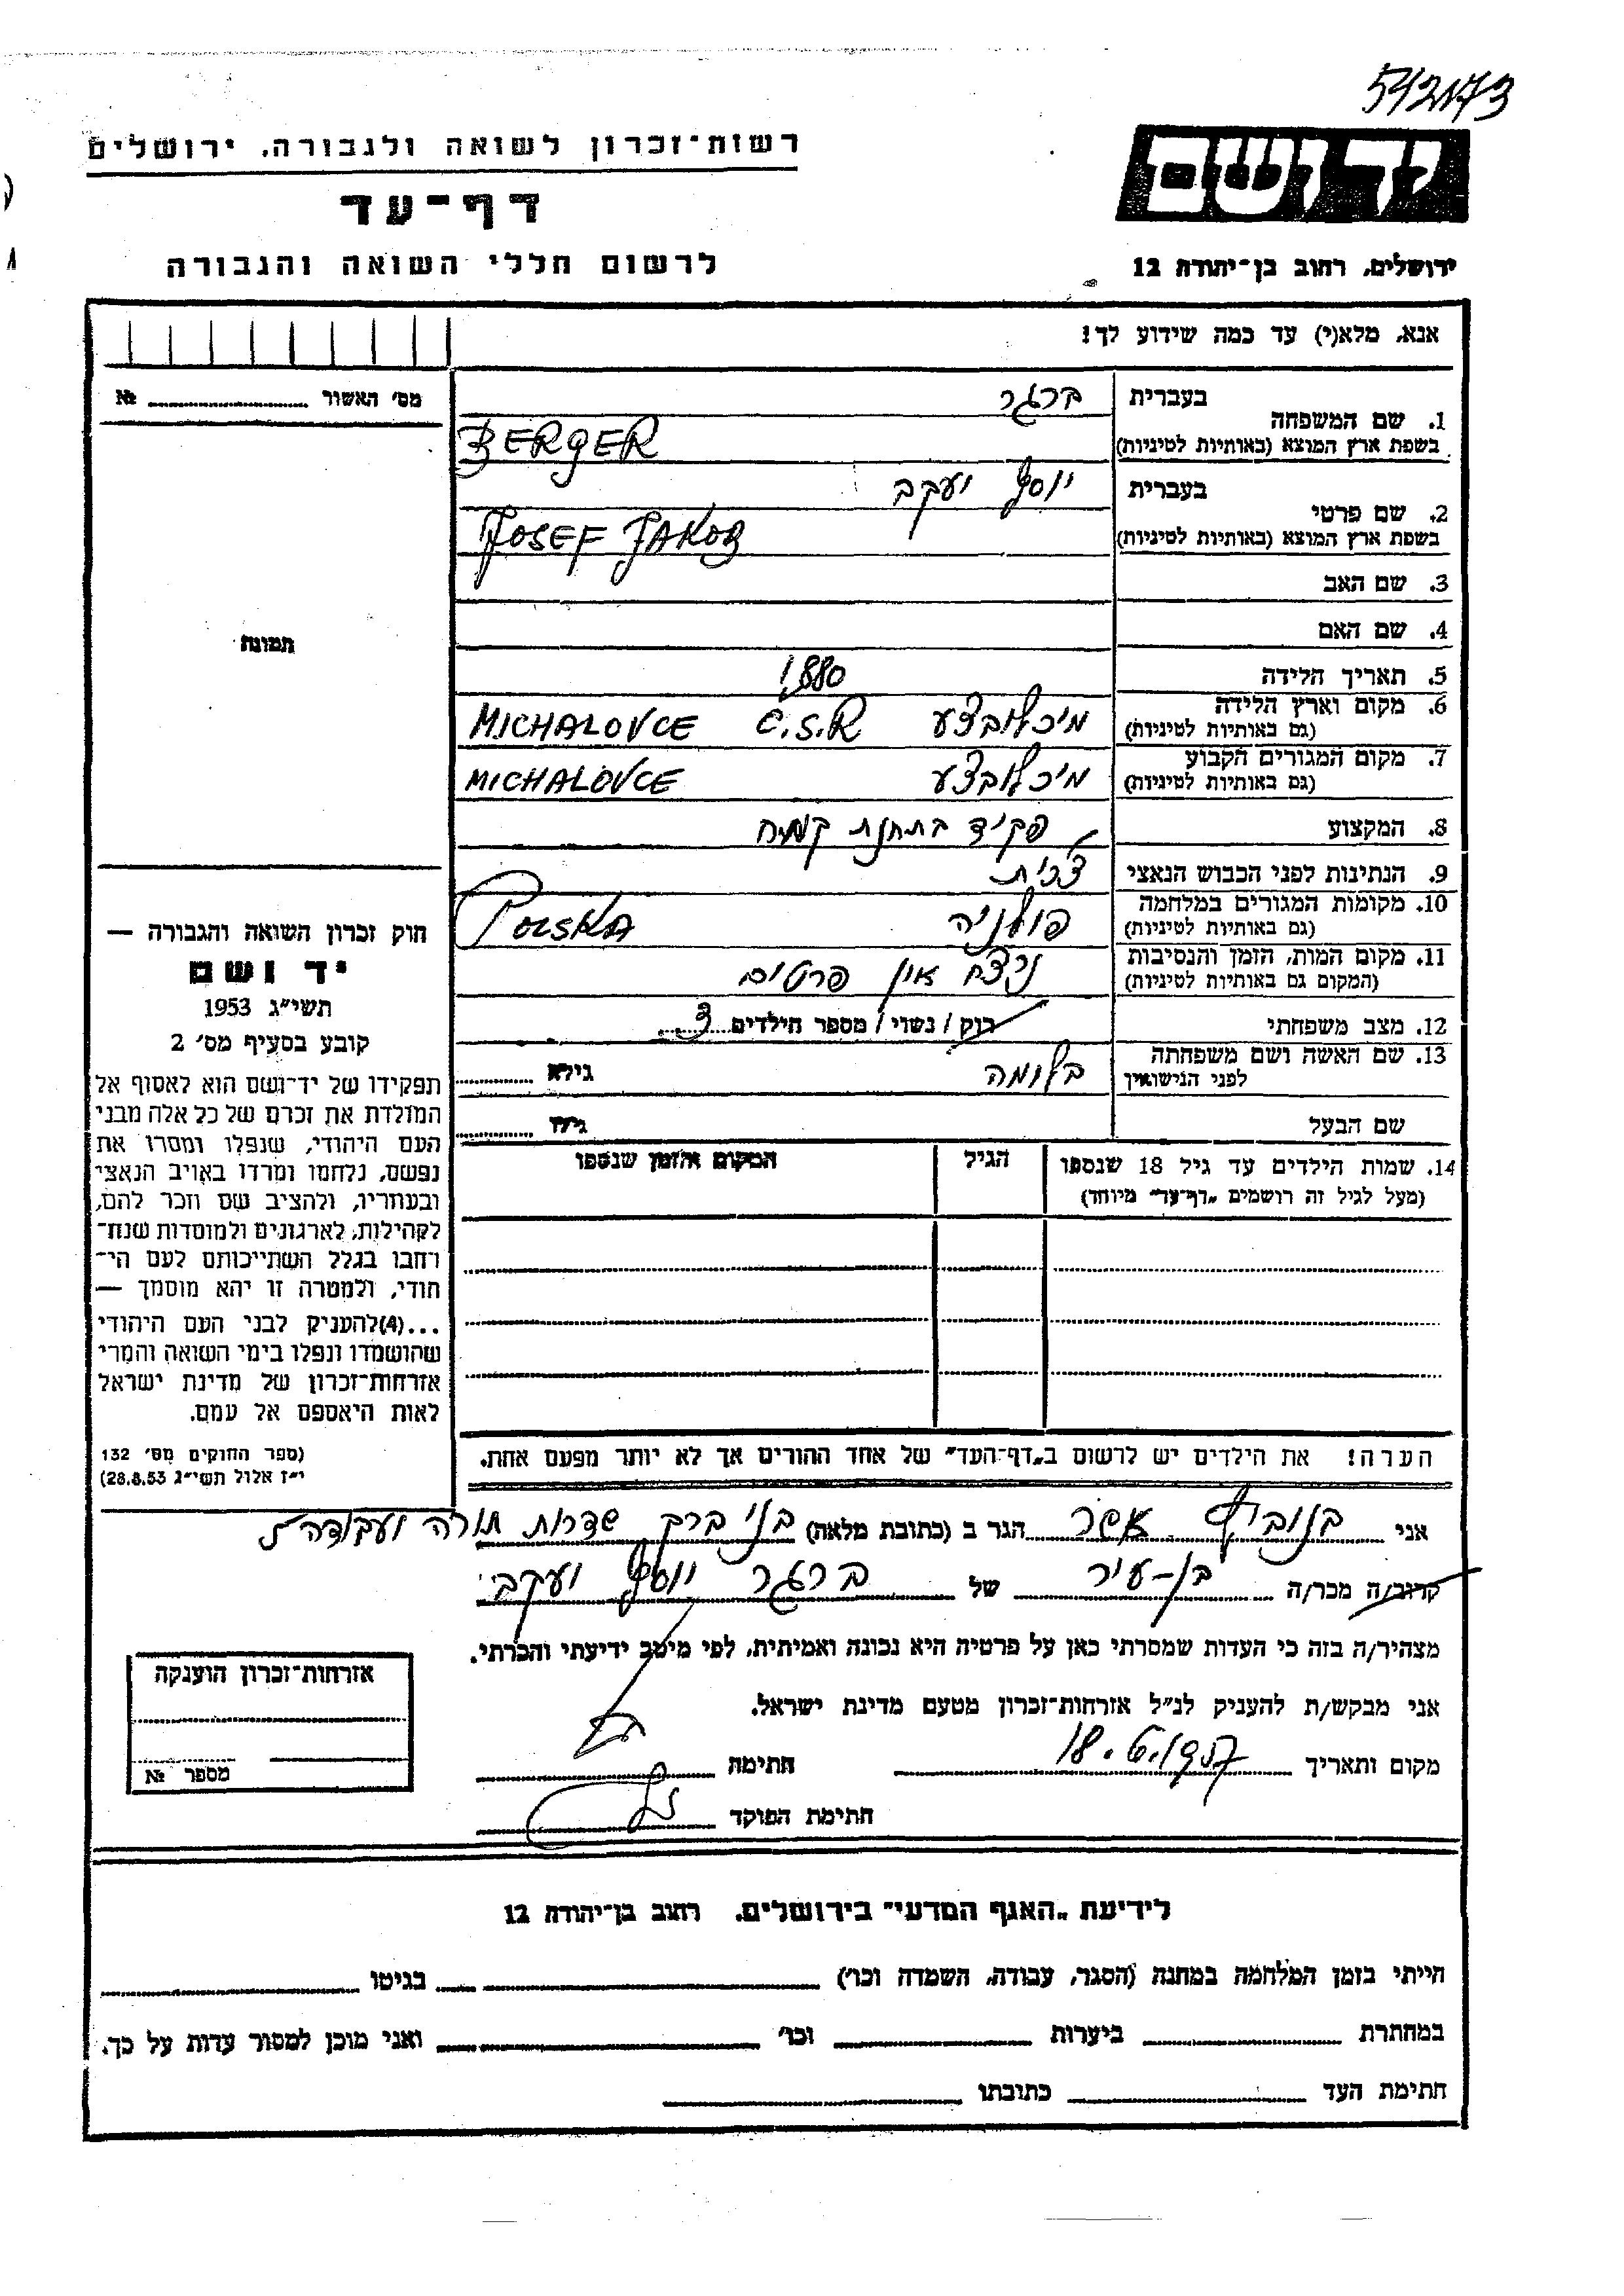 542173
רשות־זכרון לשואה ולגבורה, ירושלים
יד ושם
דף־עד
לרשום חללי השואה והגבורה
ירושלים, רחוב בן־יהודה 12
אנא, מלא(י) עד כמה שידוע לך!
מס׳ האשור № 
1. שם המשפחה
בעברית ברגר
בשפת ארץ המוצא (באותיות לטיניות) BERGER
2. שם פרטי
בעברית יוסף יעקב
בשפת ארץ המוצא (באותיות לטיניות) JOSEF JAKOB
3. שם האב
4. שם האם
תמונה
5. תאריך הלידה 1880
6. מקום וארץ הלידה (גם באותיות לטיניות) מיכלובצע MICHALOVCE C.S.R
7. מקום המגורים הקבוע (גם באותיות לטיניות) מיכלובצע MICHALOVCE
8. המקצוע פקיד בתחנת קמח
9. הנתינות לפני הכבוש הנאצי צכית
10. מקומות המגורים במלחמה (גם באותיות לטיניות) פולניה POLSKA
11. מקום המות, הזמן והנסיבות (המקום גם באותיות לטיניות) ניצח אין פרטים
12. מצב משפחתי רוק / נשוי / מספר הילדים 3
13. שם האשה ושם משפחתה לפני הנישואין בלומה גילא
שם הבעל גילו
14. שמות הילדים עד גיל 18 שנספו (מעל לגיל זה רושמים „דף־עד״ מיוחד)
הגיל
המקום והזמן שנספו
חוק זכרון השואה והגבורה —
יד ושם
תשי״ג 1953
קובע בסעיף מס׳ 2
תפקידו של יד־ושם הוא לאסוף אל
המולדת את זכרם של כל אלה מבני
העם היהודי, שנפלו ומסרו את
נפשם, נלחמו ומרדו באויב הנאצי
ובעוזריו, ולהציב שם וזכר להם,
לקהילות, לארגונים ולמוסדות שנח־
רחבו בגלל השתייכותם לעם הי־
הודי, ולמטרה זו יהא מוסמך —
...(4)להעניק לבני העם היהודי
שהושמדו ונפלו בימי השואה והמרי
אזרחות־זכרון של מדינת ישראל
לאות היאספם אל עמם.
(ספר החוקים מס׳ 132
י״ז אלול תשי״ג 28.8.53)
הערה! את הילדים יש לרשום ב„דף־העד״ של אחד ההורים אך לא יותר מפעם אחת.
אני אשר הגר ב (כתובת מלאה) בני ברק שדרות תורה ועבודה 5
קרוב/ה מכר/ה בן-עיר של ברגר יוסף יעקב
מצהיר/ה בזה כי העדות שמסרתי כאן על פרטיה היא נכונה ואמיתית, לפי מיטב ידיעתי והכרתי.
אני מבקש/ת להעניק לנ״ל אזרחות־זכרון מטעם מדינת ישראל.
מקום ותאריך 18.6.1957 חתימה
חתימת הפוקד
אזרחות־זכרון הוענקה
מספר №
לידיעת „האגף המדעי״ בירושלים, רחוב בן־יהודה 12
הייתי בזמן המלחמה במחנה (הסגר, עבודה, השמדה וכו׳) בגיטו
במחתרת ביערות וכו׳ ואני מוכן למסור עדות על כך.
חתימת העד כתובתו